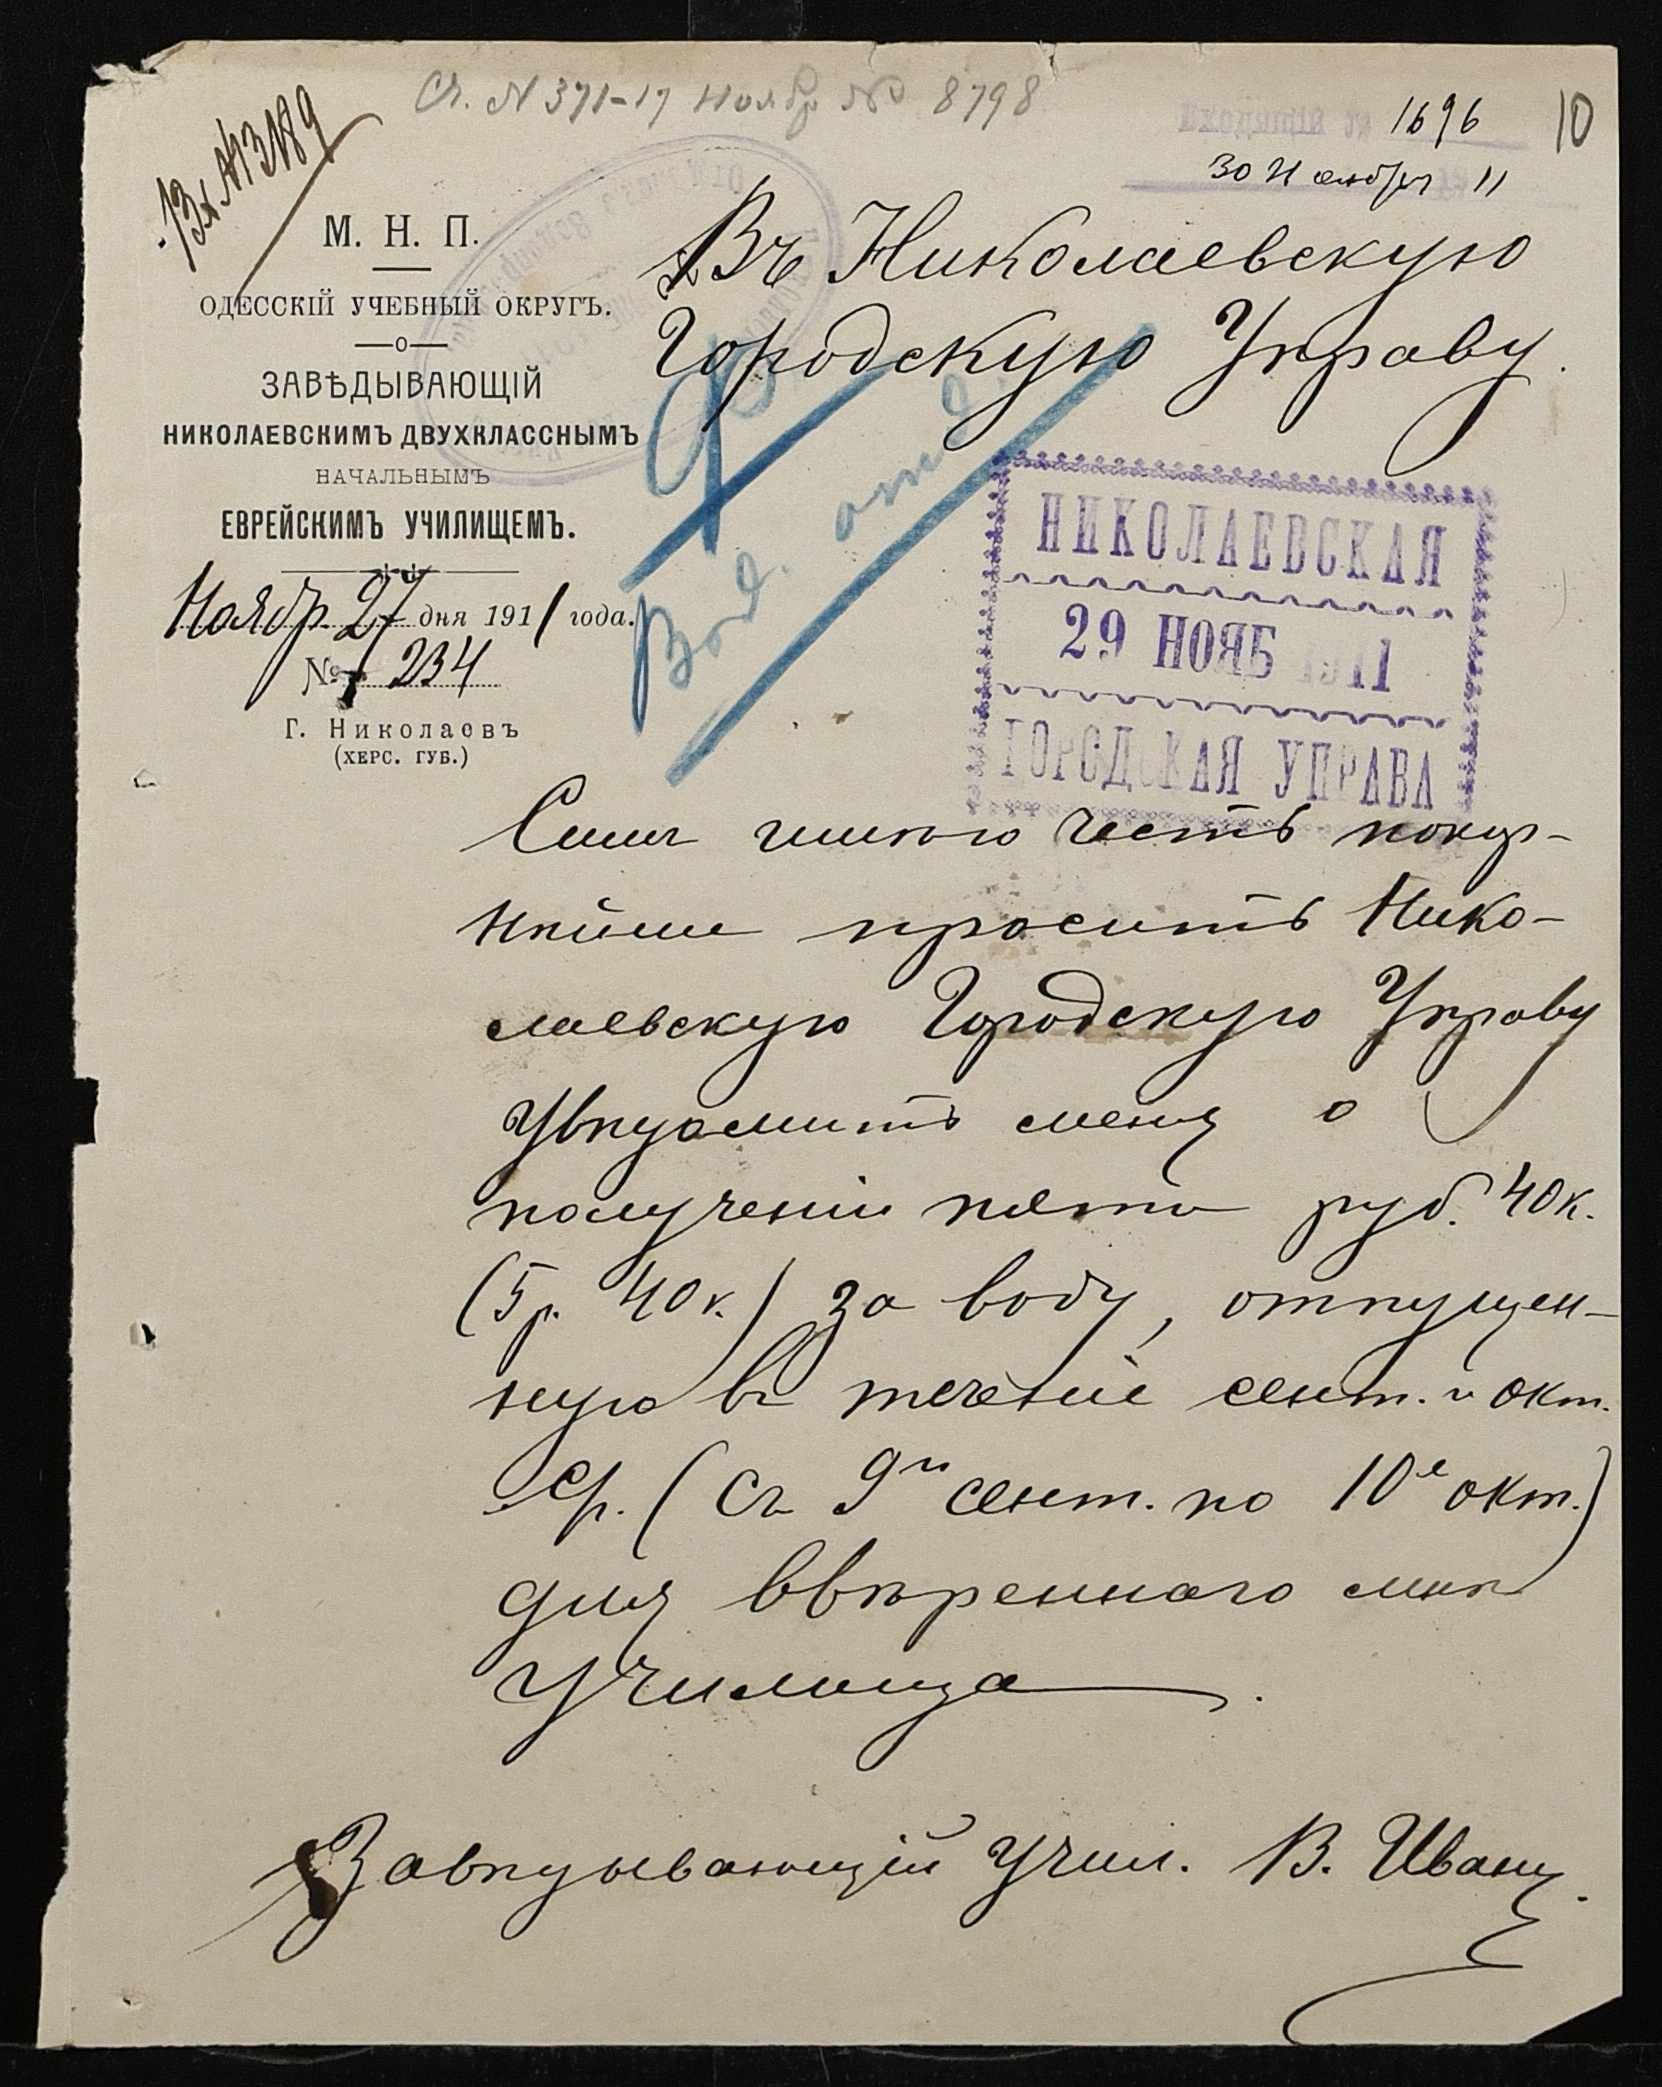 Сч. N 371-17 Ноябр № 8798
Вх № 13189
Входящій № 1696
30 Ноября 11
10
М. Н. П.
ОДЕССКІЙ УЧЕБНЫЙ ОКРУГЪ.
ЗАВѢДЫВАЮЩІЙ
НИКОЛАЕВСКИМЪ ДВУХКЛАССНЫМЪ
НАЧАЛЬНЫМЪ
ЕВРЕЙСКИМЪ УЧИЛИЩЕМЪ.
Ноябр. 27 дня 1911 года.
№ 234
Г. Николаевъ
(ХЕРС. ГУБ.)
Въ Николаевскую
Городскую Управу.
Вод. отд.
НИКОЛАЕВСКАЯ
29 НОЯБ 1911
ГОРОДСКАЯ УПРАВА
Симъ имѣю честь покор-
нѣйше просить Нико-
лаевскую Городскую Управу
увѣдомить меня о
полученіи пяти руб. 40 к.
(5 р. 40 к.) за воду, отпущен-
ную въ теченіе сент. и окт.
с/г. (съ 9го сент. по 10е окт.)
для ввѣреннаго мнѣ
училища.
Завѣдывающій Учил. В. Иванц